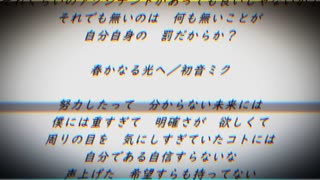 それでも無いのは　何も無いことが
自分自身の　罰だからか？
春かなる光へ／初音ミク
努力したって　分からない未来には
僕には重すぎて　明確さが　欲しくて
周りの目を　気にしすぎていたコトには
自分である自信すらないな
声上げた　希望すらも持ってない